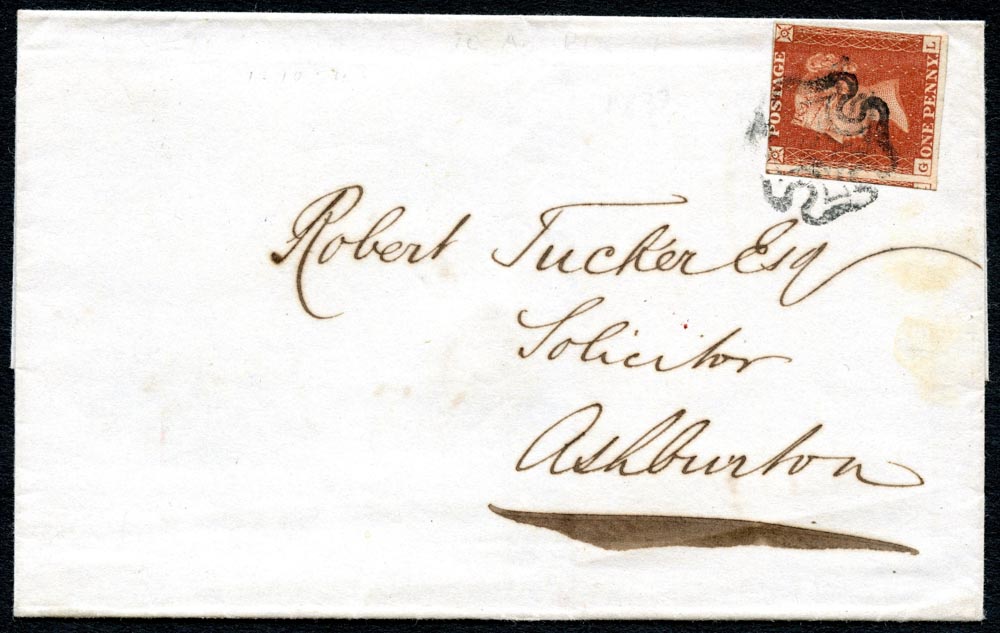 POSTAGE
L
G
ONE PENNY
Robert Tucker Esq
Solicitor
Ashburton